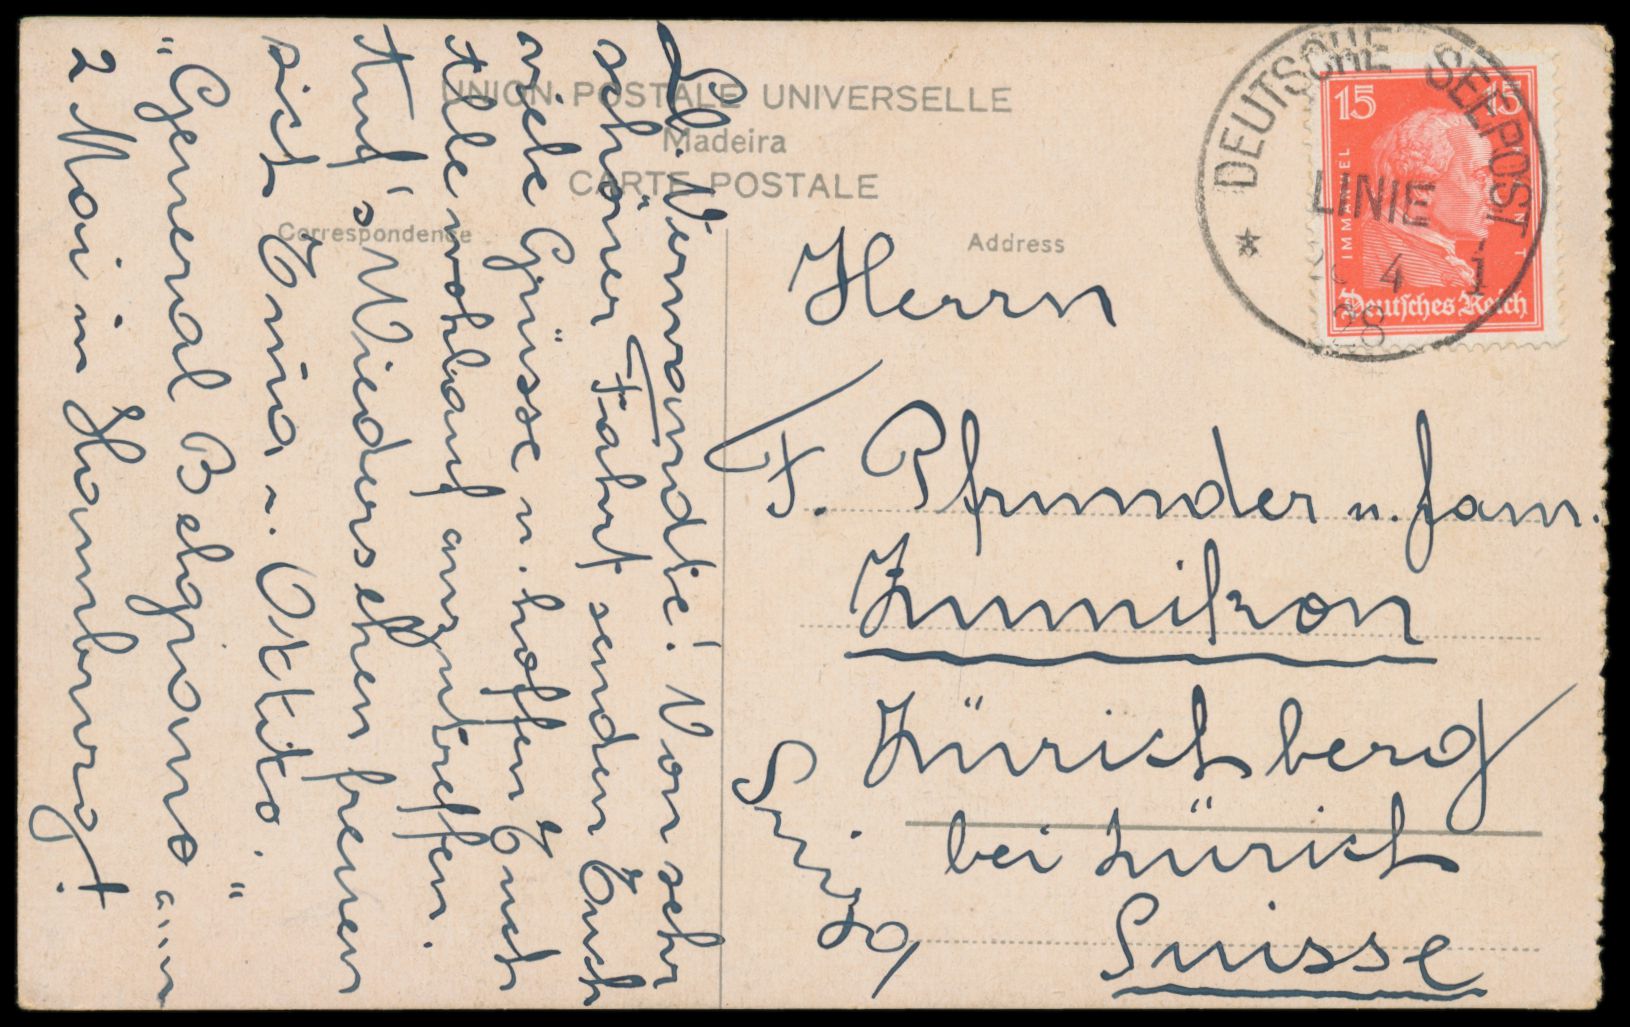 UNION POSTALE UNIVERSELLE
Madeira
CARTE POSTALE
Correspondence
Address
DEUTSCHE SEEPOST
LINIE
4
28
15 15
IMMANUEL
Deutsches Reich
Lb. Verwandte! Von sehr
schöner Fahrt senden Euch
viele Grüsse u. hoffen Euch
Alle wohlauf anzutreffen.
Auf's Wiedersehen freuen
sich Erna u. Okkito.
"General Belgrano" an
2 Mai in Hamburg!
Herrn
F. Pfrunder u. fam.
Zumikon
Zürichberg
bei Zürich
Suisse